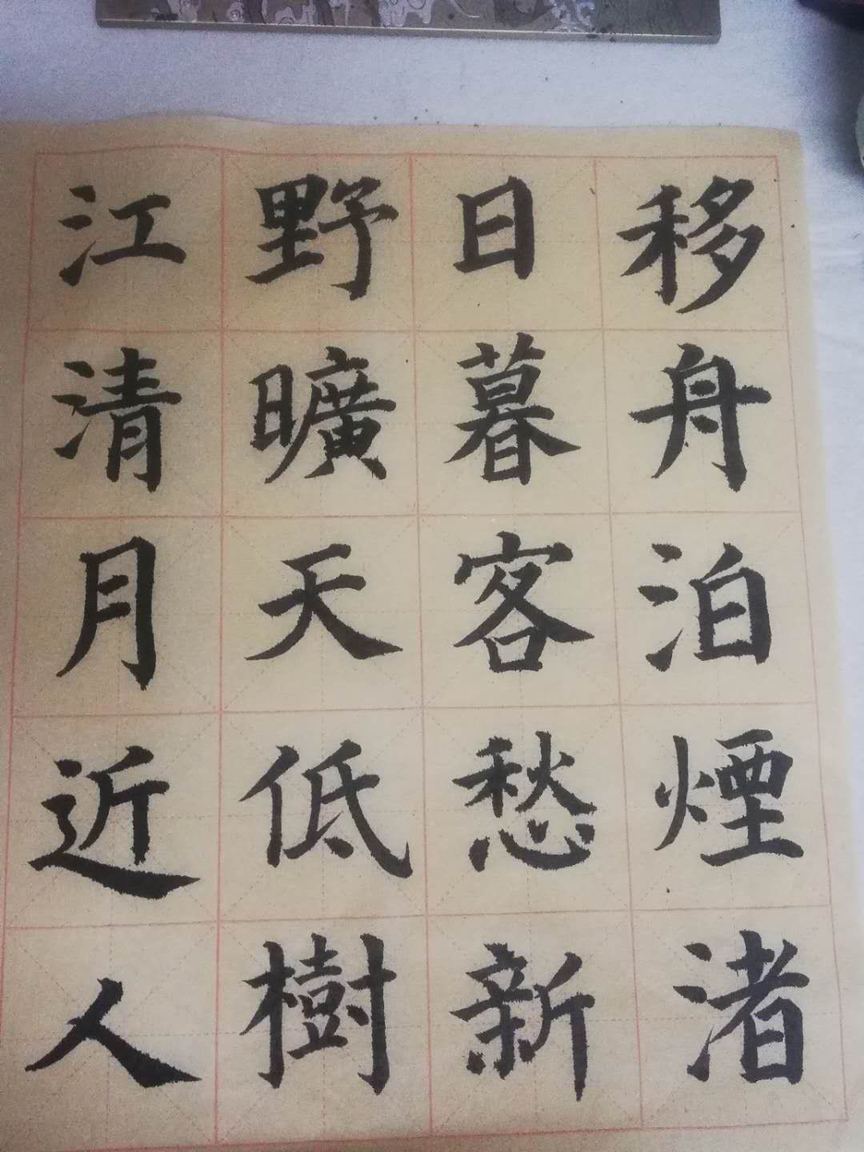 移舟泊煙渚
日暮客愁新
野曠天低樹
江清月近人